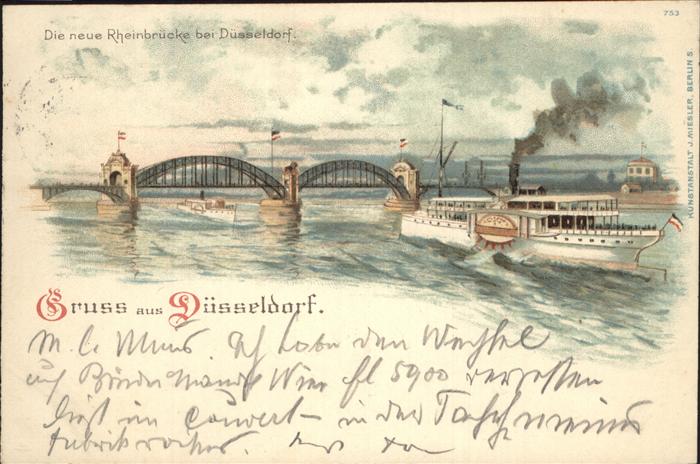 Die neue Rheinbrücke bei Düsseldorf.
753
KUNSTANSTALT J. MIESLER, BERLIN S.
Gruss aus Düsseldorf.
M. l. Ich habe den Wechsel
auf Wien fl 5900 vergessen
liegt im Couvert in der